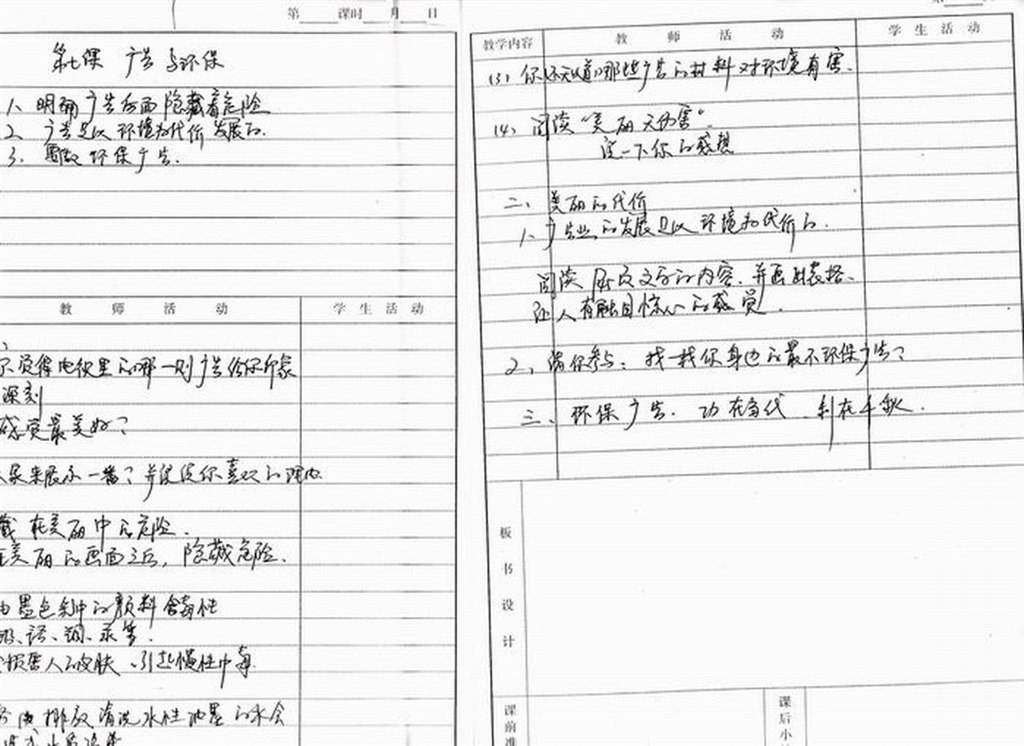 第 课时 月 日
第七课 广告与环保
1、明确广告后面隐藏着危险
2、广告是以环境为代价发展的.
3、要做环保广告.
教 师 活 动
学 生 活 动
觉得电视里的哪一则广告给你印象
深刻
感觉最美好?
来展示一番?并说说你喜欢的理由
藏在美丽中的危险.
在美丽的画面之后,隐藏危险.
由墨色制中的颜料含毒性
铜、汞等.
损害人的皮肤、引起慢性中毒
排放清洗水性油墨的水会
教学内容
教 师 活 动
学 生 活 动
(3)你还知道哪些广告的材料对环境有害.
(4)阅读“美丽无伤害”.
谈一下你的感想
二、美丽的代价
1、广告业的发展是以环境为代价的.
阅读 文字的内容.并画出表格.
让人有触目惊心的感觉.
2、请你参与:找一找你身边的最不环保广告?
三、环保广告.功在当代.利在千秋.
板书设计
课前准
课后小